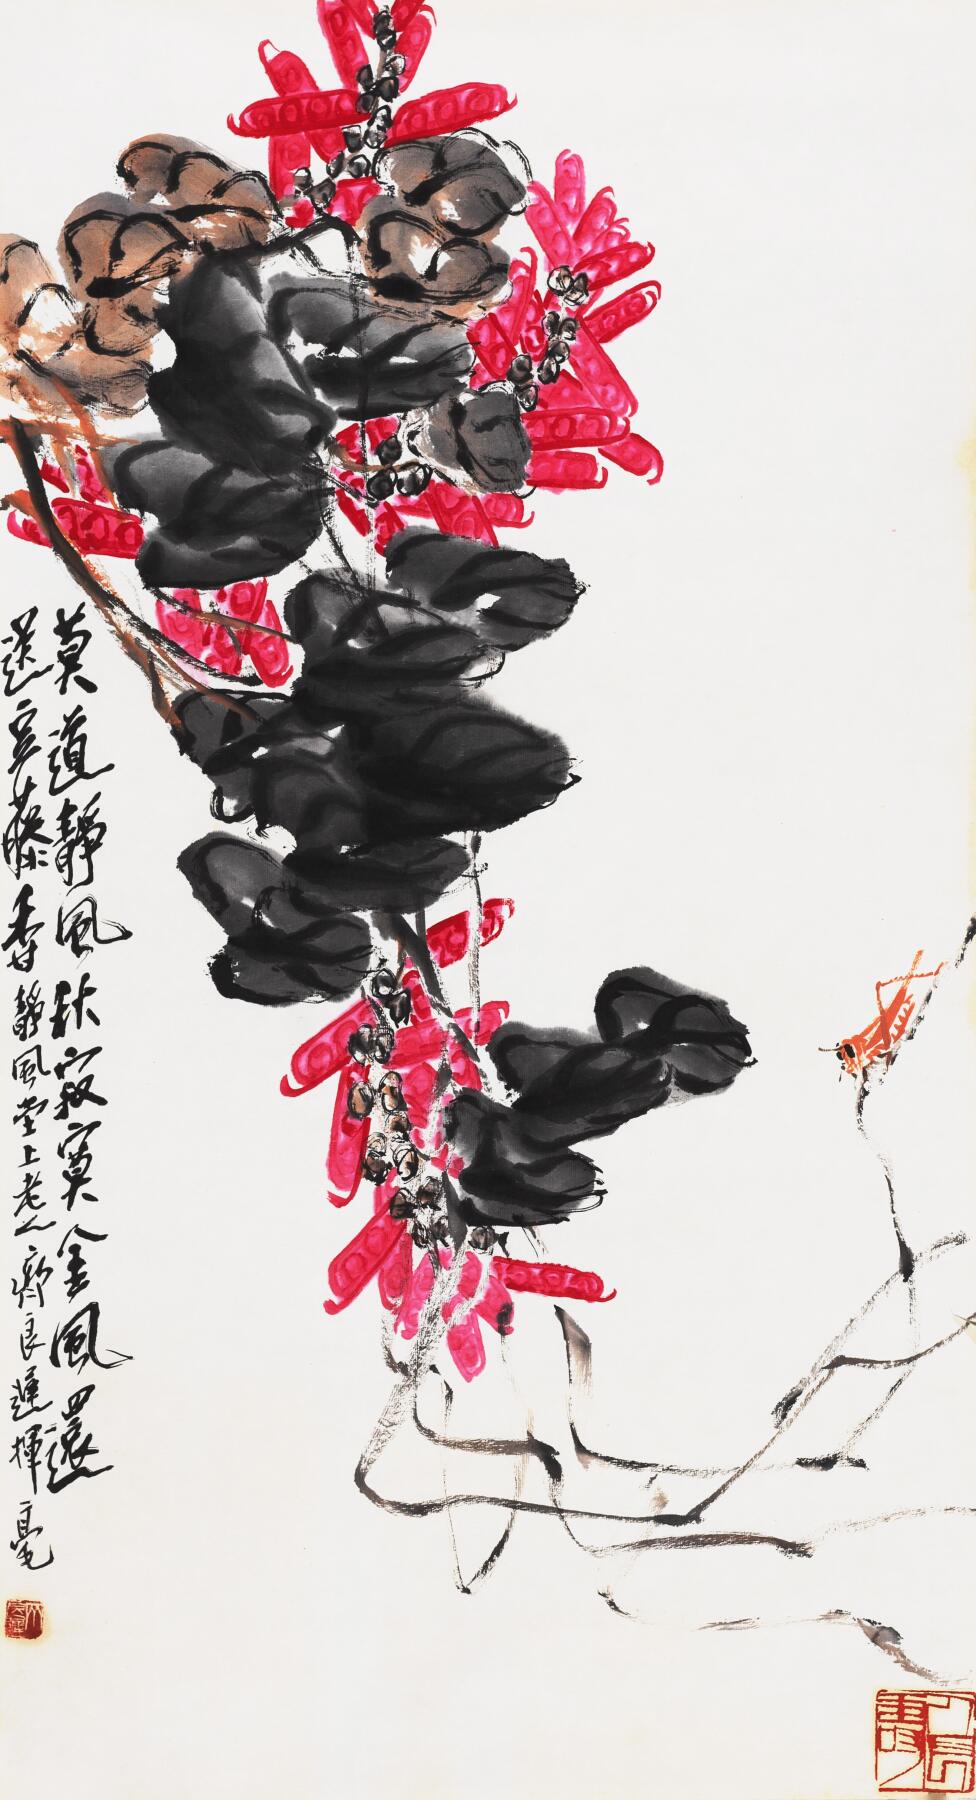 莫道靜風秋寂寞金風還
送豆藤香靜風堂上老人齊良遲揮毫